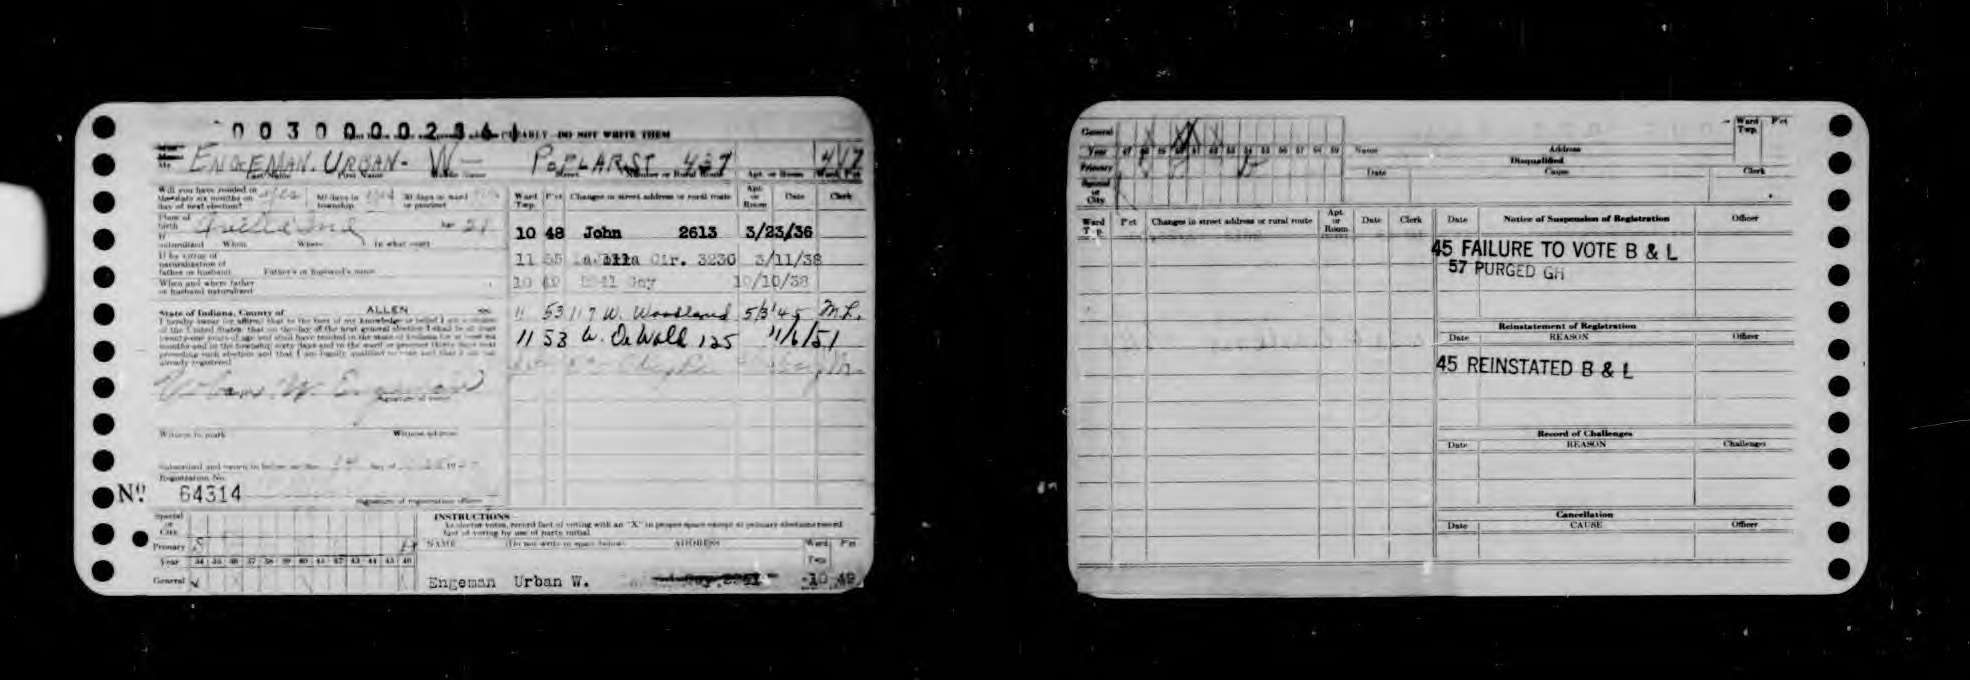 0030000234
ABLY - DO NOT WRITE THEM
ENGEMAN, URBAN- W- POPLAR ST 437 4 17
Last Name First Name Middle Name Street Number or Rural Route Apt. or Room Ward Pct
Will you have resided in
the state six months on yes 60 days in township 30 days in ward or precinct
day of next election?
Place of birth Ind 21
If naturalized When Where In what court
If by virtue of
naturalization of
father or husband Father's or husband's name
When and where father
or husband naturalized
State of Indiana, County of ALLEN ss:
I hereby swear (or affirm) that to the best of my knowledge or belief I am a citizen
of the United States; that on the day of the next general election I shall be at least
twenty-one years of age and shall have resided in the state of Indiana for at least six
months and in the township sixty days and in the ward or precinct thirty days next
preceding such election and that I am legally qualified to vote and that I am not
already registered
Urban W. Engeman
Signature of voter
Witness to mark Witness address
Subscribed and sworn to before me this day of 19
Registration No.
No. 64314
Signature of registration officer
Ward Twp. Pct Changes in street address or rural route Apt. or Room Date Clerk
10 48 John 2613 3/23/36
11 55 Cir. 3230 3/11/38
10 10/10/38
11 53 117 W. Woodland 5/3/45 M.L.
11 53 W. DeWald 125 11/6/51
Special
or
City
Primary
Year 34 35 36 37 38 39 40 41 42 43 44 45 46
General
INSTRUCTIONS—
As elector votes, record fact of voting with an "X" in proper space except at primary elections record
fact of voting by use of party initial
NAME (Do not write in space below) ADDRESS Ward Twp. Pct
Engeman Urban W. 10 49
General
Year 47 48 49 50 51 52 53 54 55 56 57 58 59
Primary
Special
or
City
Name Address Ward Twp. Pct
Disqualified
Date Cause Clerk
Ward Twp. Pct Changes in street address or rural route Apt. or Room Date Clerk
Date Notice of Suspension of Registration Officer
45 FAILURE TO VOTE B & L
57 PURGED GH
Reinstatement of Registration
Date REASON Officer
45 REINSTATED B & L
Record of Challenges
Date REASON Challenger
Cancellation
Date CAUSE Officer